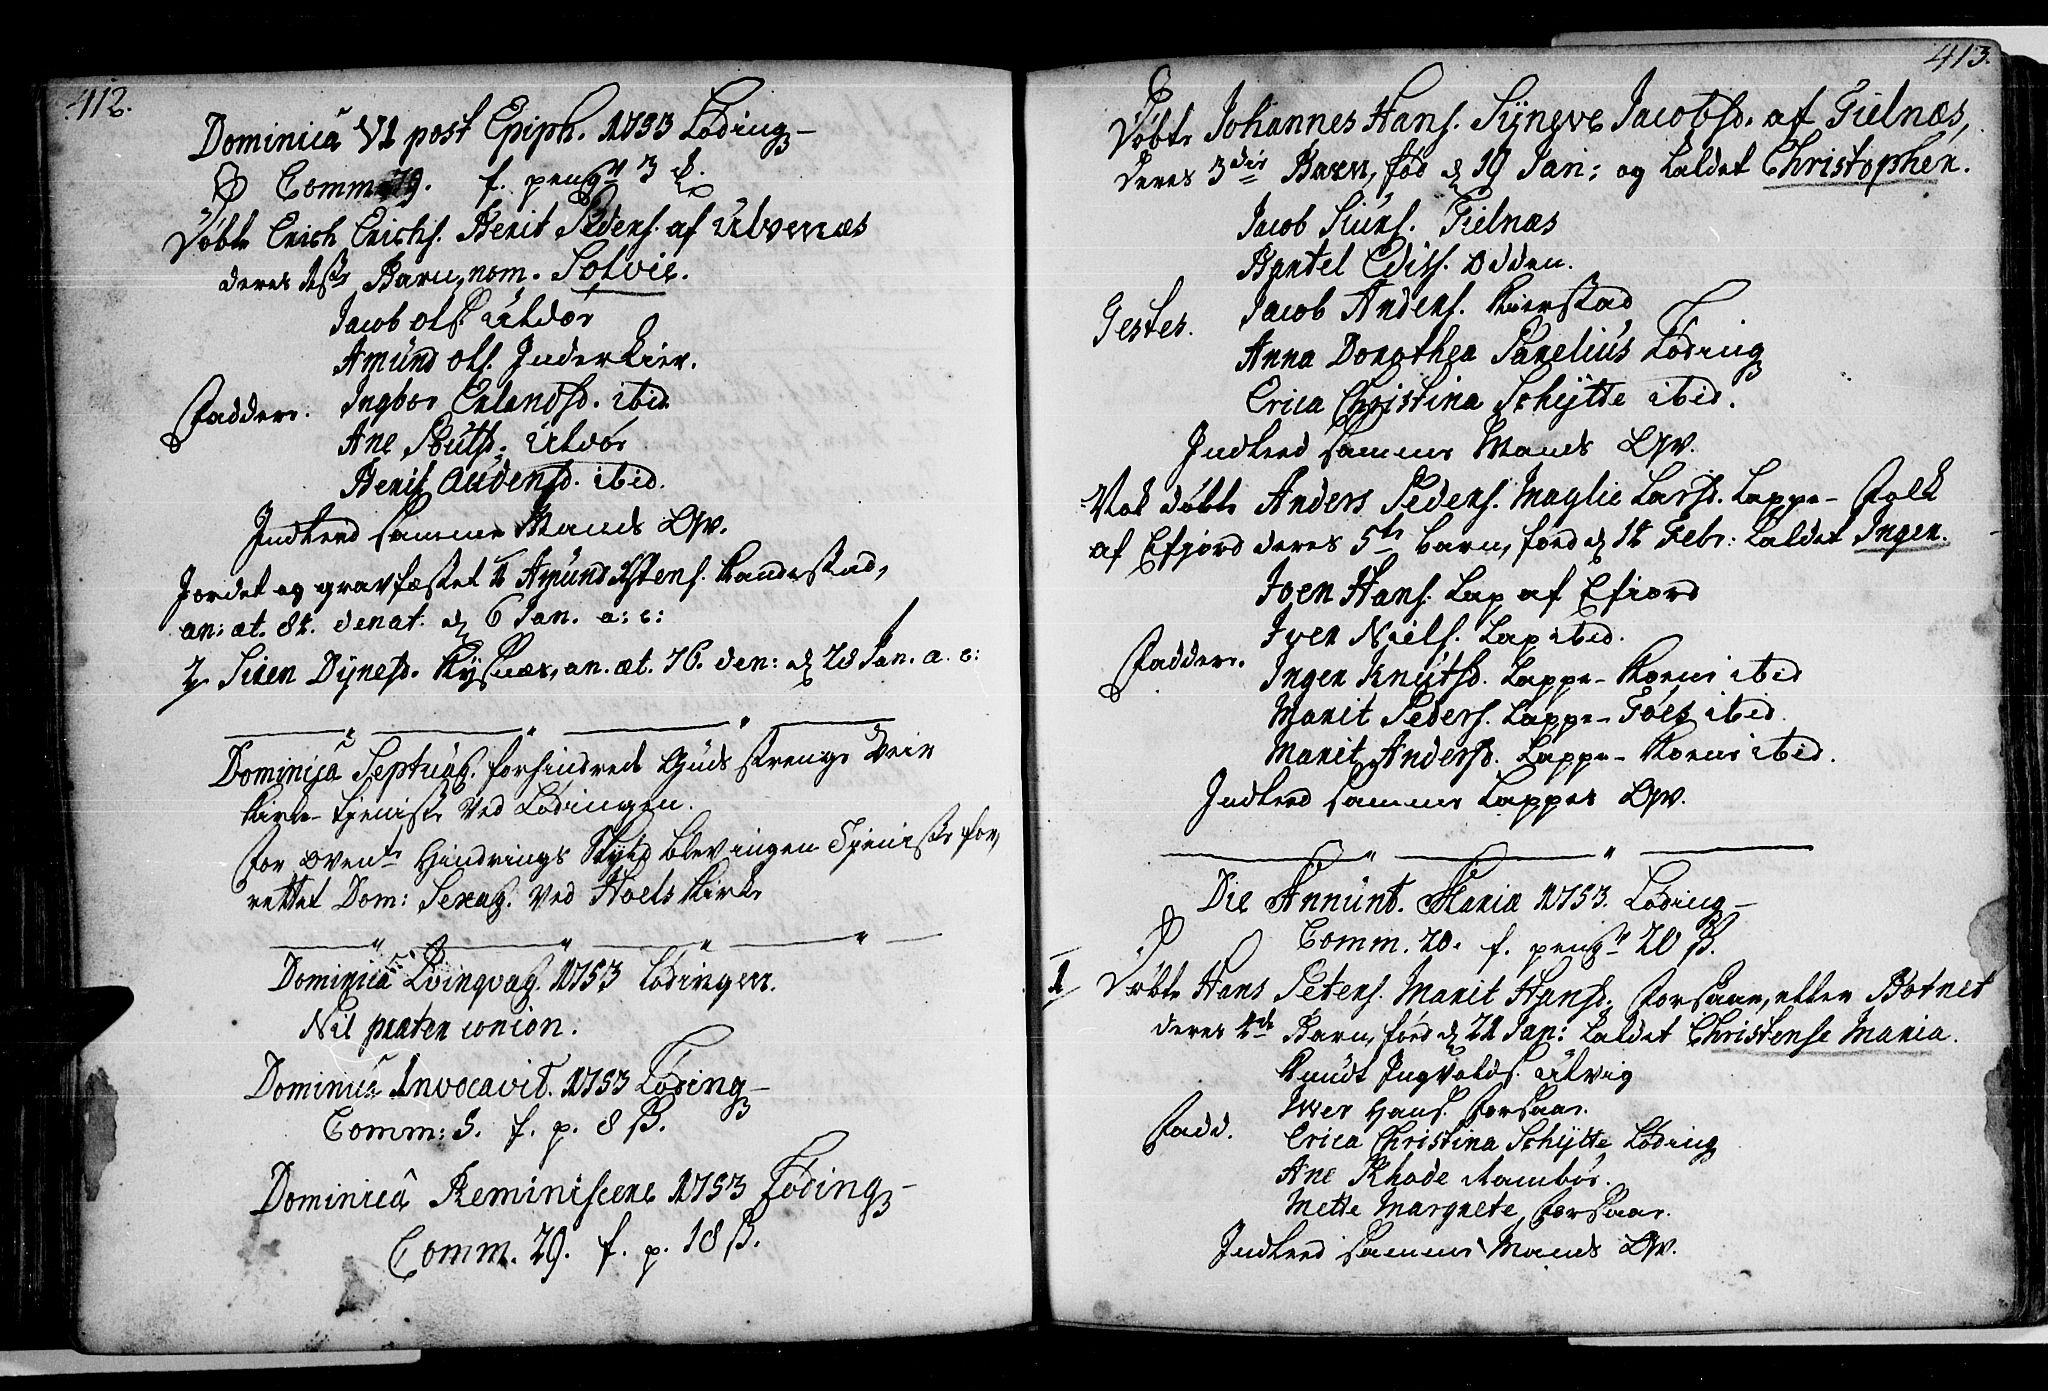 412.
Dominicâ VI post Epiph. 1753 Løding
Comm. 79. f. peng
Døbt Erich Erichs. Berit Peders. af Ulvenæs
deres 1ste Barn, nom. Solvie.
Jacob Ols. Utdør
Amund Ols. Inderkier.
Faddere. Ingbor Erlandsd. ibid.
Ane Knutsd. Utdør
Berit Audensd. ibid.
Indleed samme Mands Qv.
Jordet og gravfæstet 1 Amund Ranestad,
an: æt. 84. denat. d 6 Jan. a: c:
2 Siren Dynesd. Rysnæs, an. æt. 76. den: d 28 Jan. a. c:
Dominicâ Septuag. forhindrede Guds strenge Veir
Kirke-tieniste ved Lødingen.
For oven Hindrings Skyld blev ingen Tieniste for,
rettet Dom: Sexag. ved Hoels Kirke
Dominicâ Qvinqvag. 1753 Lødingen.
Nil præter concion.
Dominicâ Invocavit. 1753 Løding
Comm: 5. f. p. 8 ß.
Dominicâ Reminiscere 1753 Løding
Comm. 29. f. p. 18 ß.
413.
Døbt Johannes Hans. Syneve Jacobsd. af Fielnæs,
deres 3die Barn, fød d 19 Jan; og kaldet Christopher.
Jacob Siurs. Fielnæs
Bertel Edis. Odden.
Testes. Jacob Anders. Kierstad
Anna Dorothea Parelius Løding
Erica Christina Schytte ibid.
Indleed samme Mands Qv.
Nok døbt Anders Peders. Maglie Larsd. Lappe-Folk
af Efjord deres 5te barn, fød d 14 Febr: kaldet Inger.
Joen Hans. Lap af Efiord
Iver Niels. Lap ibid.
Faddere. Inger Knutsd. Lappe-Kone ibid
Marit Peders. Lappe-Tøes ibid.
Marit Andersd. Lappe-Kone ibid.
Indleed samme Lappes Qv.
Die Annunt. Mariæ 1753. Løding
Comm. 20. f. peng 20 ß.
1 Døbt Hans Peters. Marit Hansd. Forsaae, eller Botnet
deres 4de Barn, fød d 22 Jan: kaldet Christense Maria.
Knudt Ingvolds. Ulvig
Iwer Hans. Forsaae.
Fadd. Erica Christina Schytte Løding
Ane Rhode Rambør.
Mette Margrete Forsaae.
Indleed samme Mands Qv.